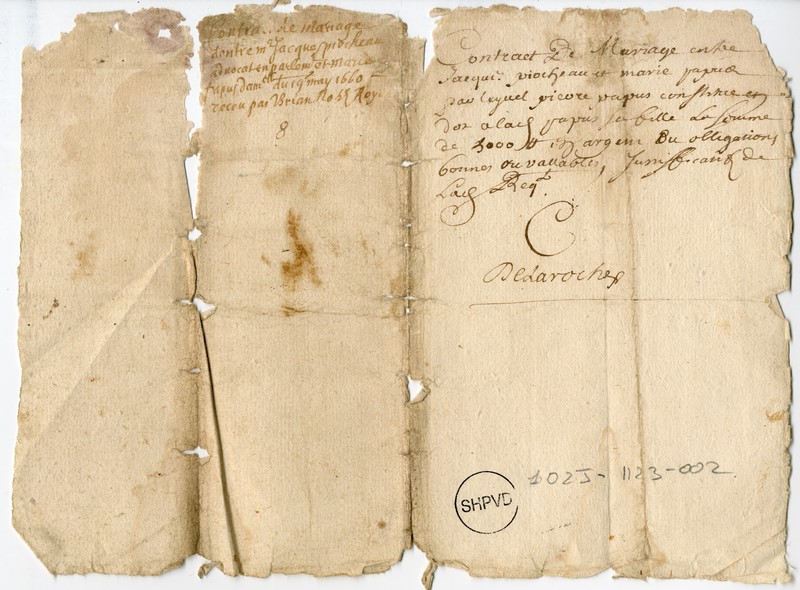 contract de mariage
dentre mr Jacques piocheau
advocat en parlemt et marie
papus dam du 19 may 1660
receu par Brian No Roy
8
Contract De Mariage entre
Jacques piocheau et marie papus
par lequel pierre papus constitue en
dot a lad papus sa fille La somme
de 3000 tt en argent ou obligations
bonnes ou vallables, de
Lad Req
C
Delaroche
SHPVD
102J-1123-002